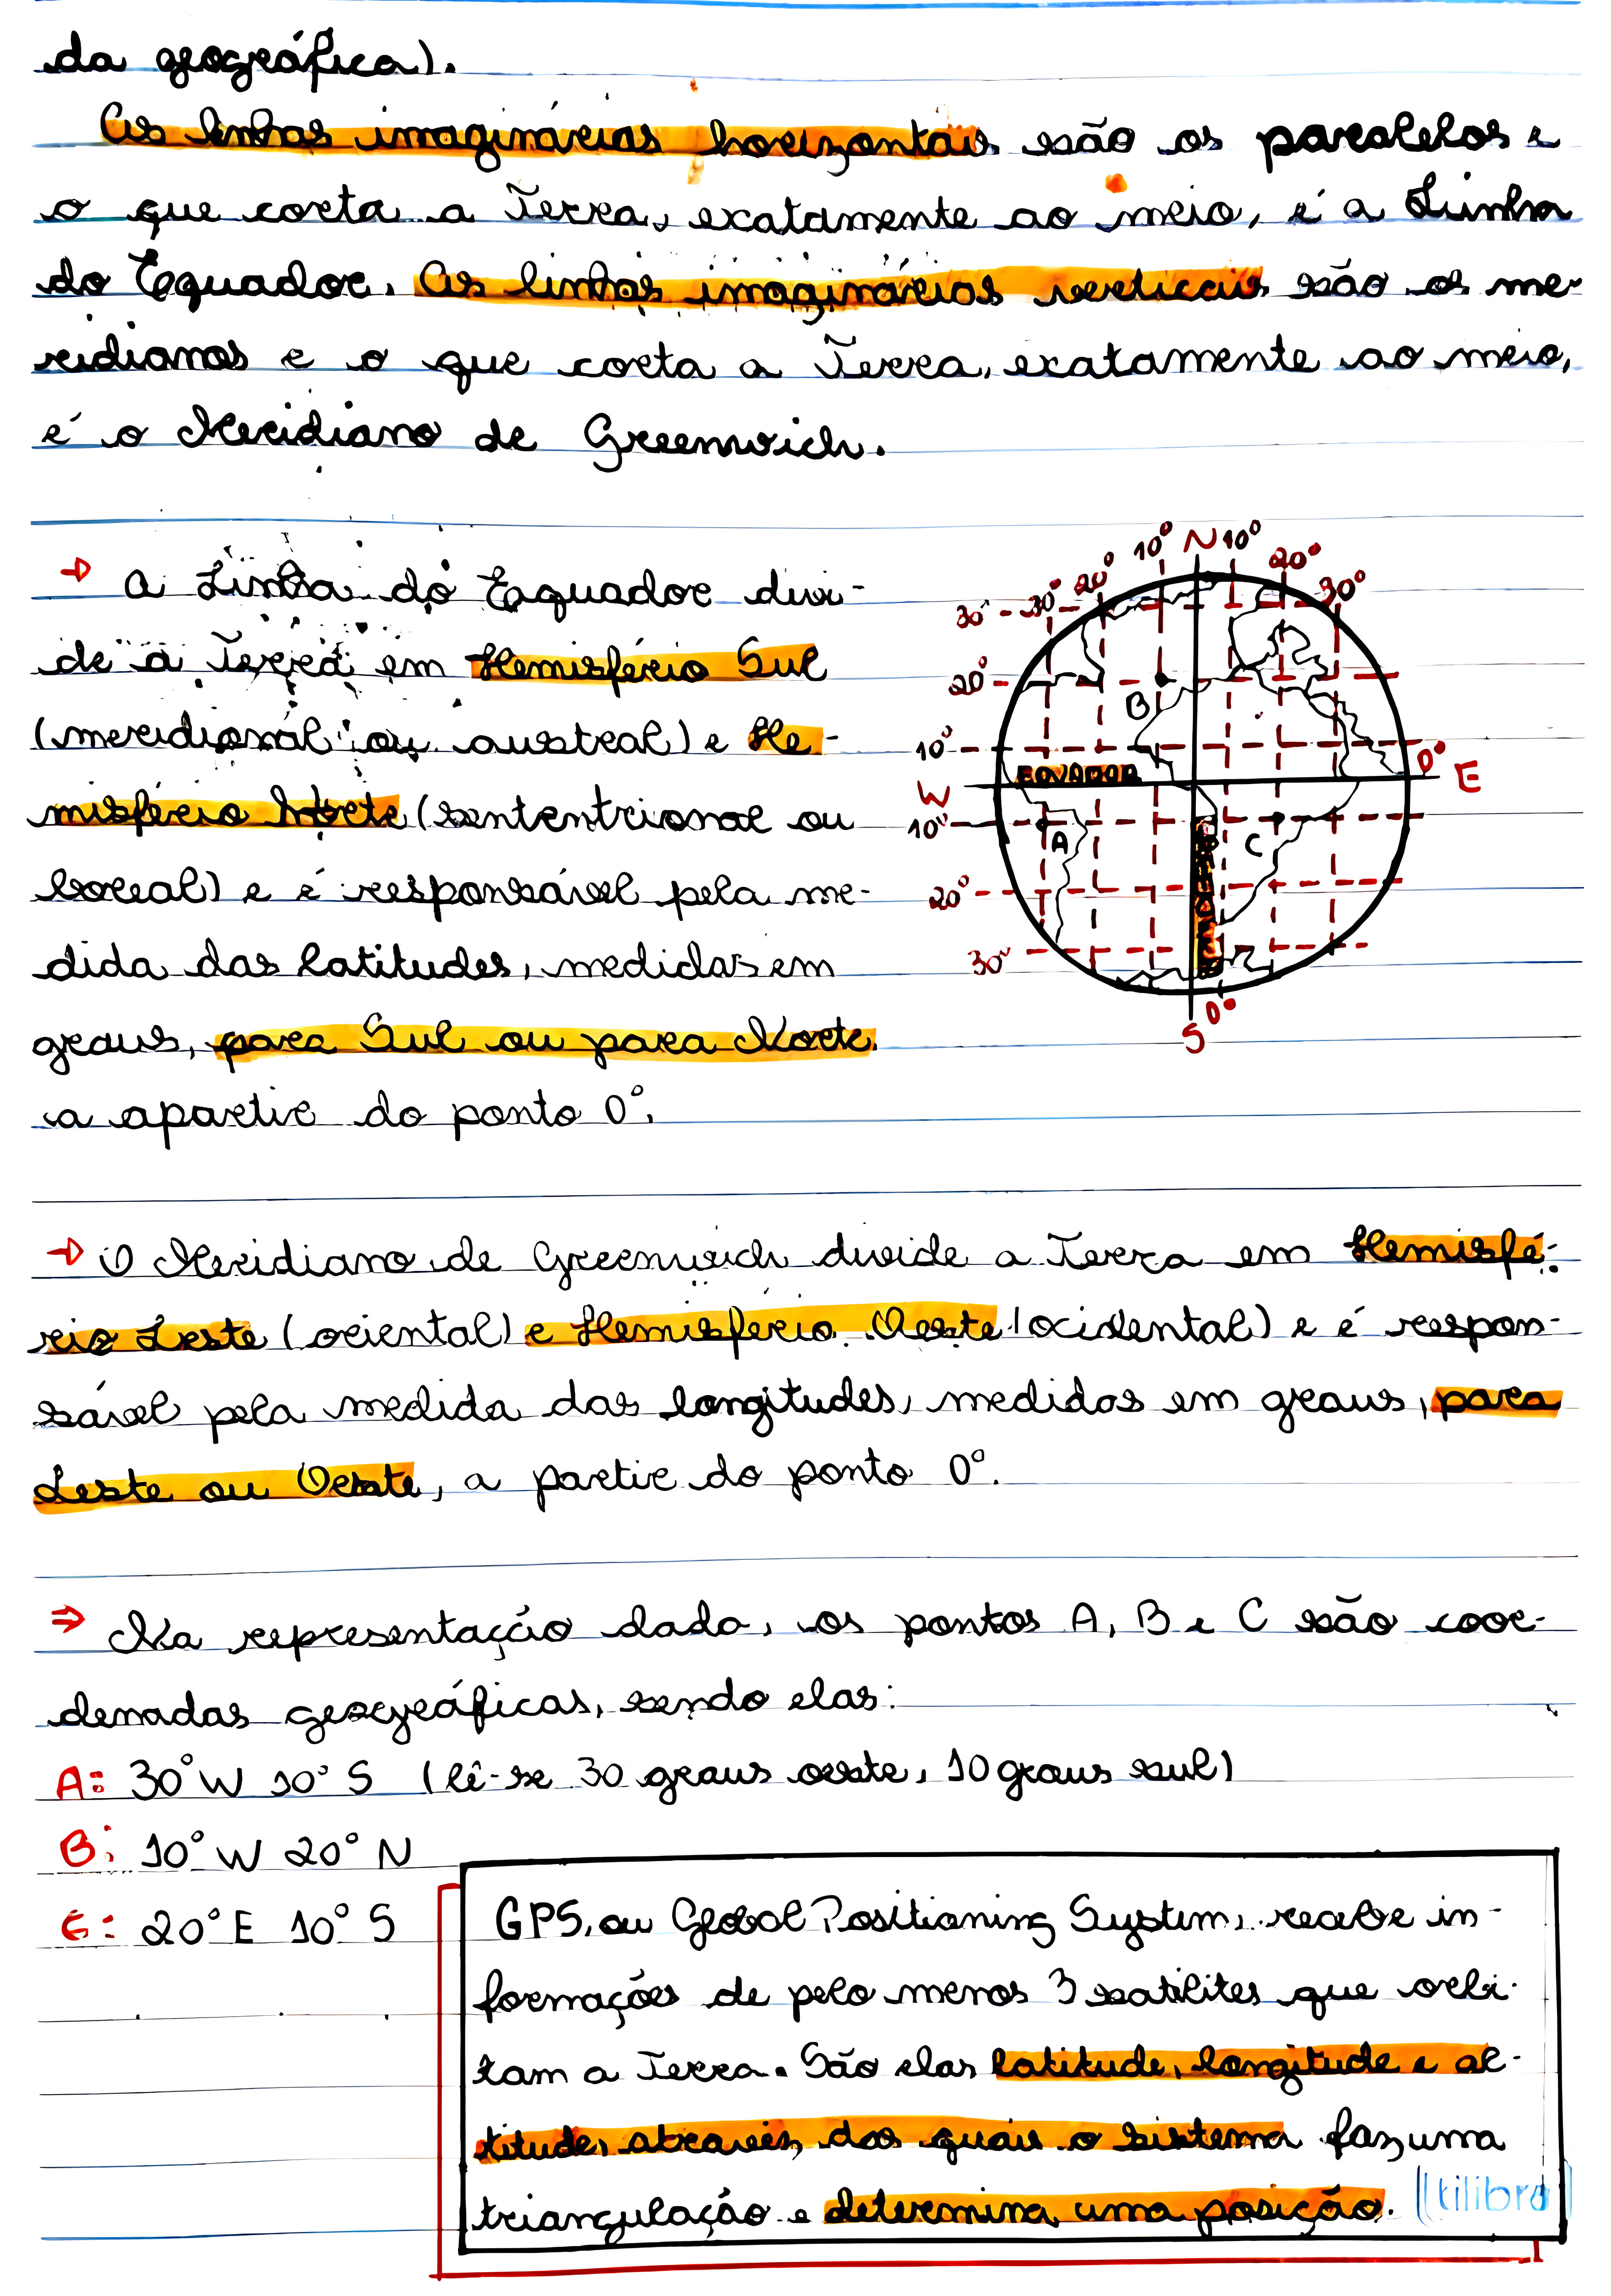 da geográfica).
As linhas imaginárias horizontais são os paralelos e
o que corta a Terra, exatamente ao meio, é a Linha
do Equador. As linhas imaginárias verticais são os me-
ridianos e o que corta a Terra, exatamente ao meio,
é o Meridiano de Greenwich.
→ A Linha do Equador divi-
de a Terra em Hemisfério Sul
(meridional ou austral) e He-
misfério Norte (sententrional ou
boreal) e é responsável pela me-
dida das latitudes, medidas em
graus, para Sul ou para Norte,
a apartir do ponto 0°.
30° 20° 10° N 10° 20° 30°
30°
20°
B
10°
EQUADOR
0°
W
E
10°
A
C
20°
30°
0°
S
→ O Meridiano de Greenwich divide a Terra em Hemisfé-
rio Leste (oriental) e Hemisfério Oeste (ocidental) e é respon-
sável pela medida das longitudes, medidas em graus, para
Leste ou Oeste, a partir do ponto 0°.
⇒ Na representação dada, os pontos A, B e C são coor-
denadas geográficas, sendo elas:
A: 30° W 10° S (lê-se 30 graus oeste, 10 graus sul)
B: 10° W 20° N
C: 20° E 10° S
GPS, ou Global Positioning System, recebe in-
formações de pelo menos 3 satélites que orbi-
tam a Terra. São elas latitude, longitude e al-
titude, através dos quais o sistema faz uma
triangulação e determina uma posição.
tilibra